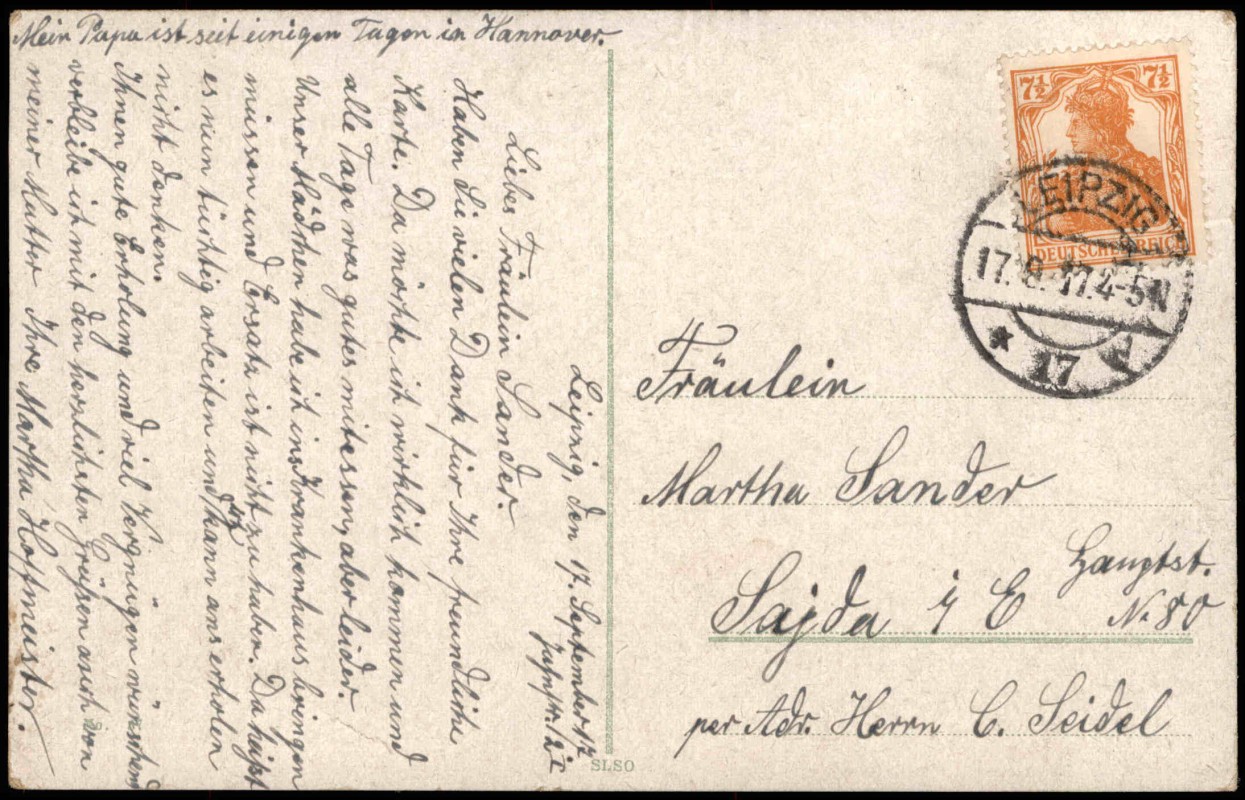 Mein Papa ist seit einigen Tagen in Hannover.
Leipzig, den 17. September 17
Liebes Fräulein Sander.
Haben Sie vielen Dank für Ihre freundliche
Karte. Da möchte ich wirklich kommen und
alle Tage was gutes mitessen, aber leider.
Unser Mädchen habe ich ins Krankenhaus bringen
müssen und Ersatz ist nicht zu haben. Da heißt
es nun tüchtig arbeiten und kann ans erholen
nicht denken.
Ihnen gute Erholung und viel Vergnügen wünschend
verbleibe ich mit den herzlichsten Grüßen auch von
meiner Mutter Ihre Martha Hoffmeister.
7½ 7½
DEUTSCHES REICH
LEIPZIG
17.9.17.4-5N
* 17 *
Fräulein
Martha Sander
Sajda i/E
Hauptst.
No 80
per Adr. Herrn C. Seidel
SLSO